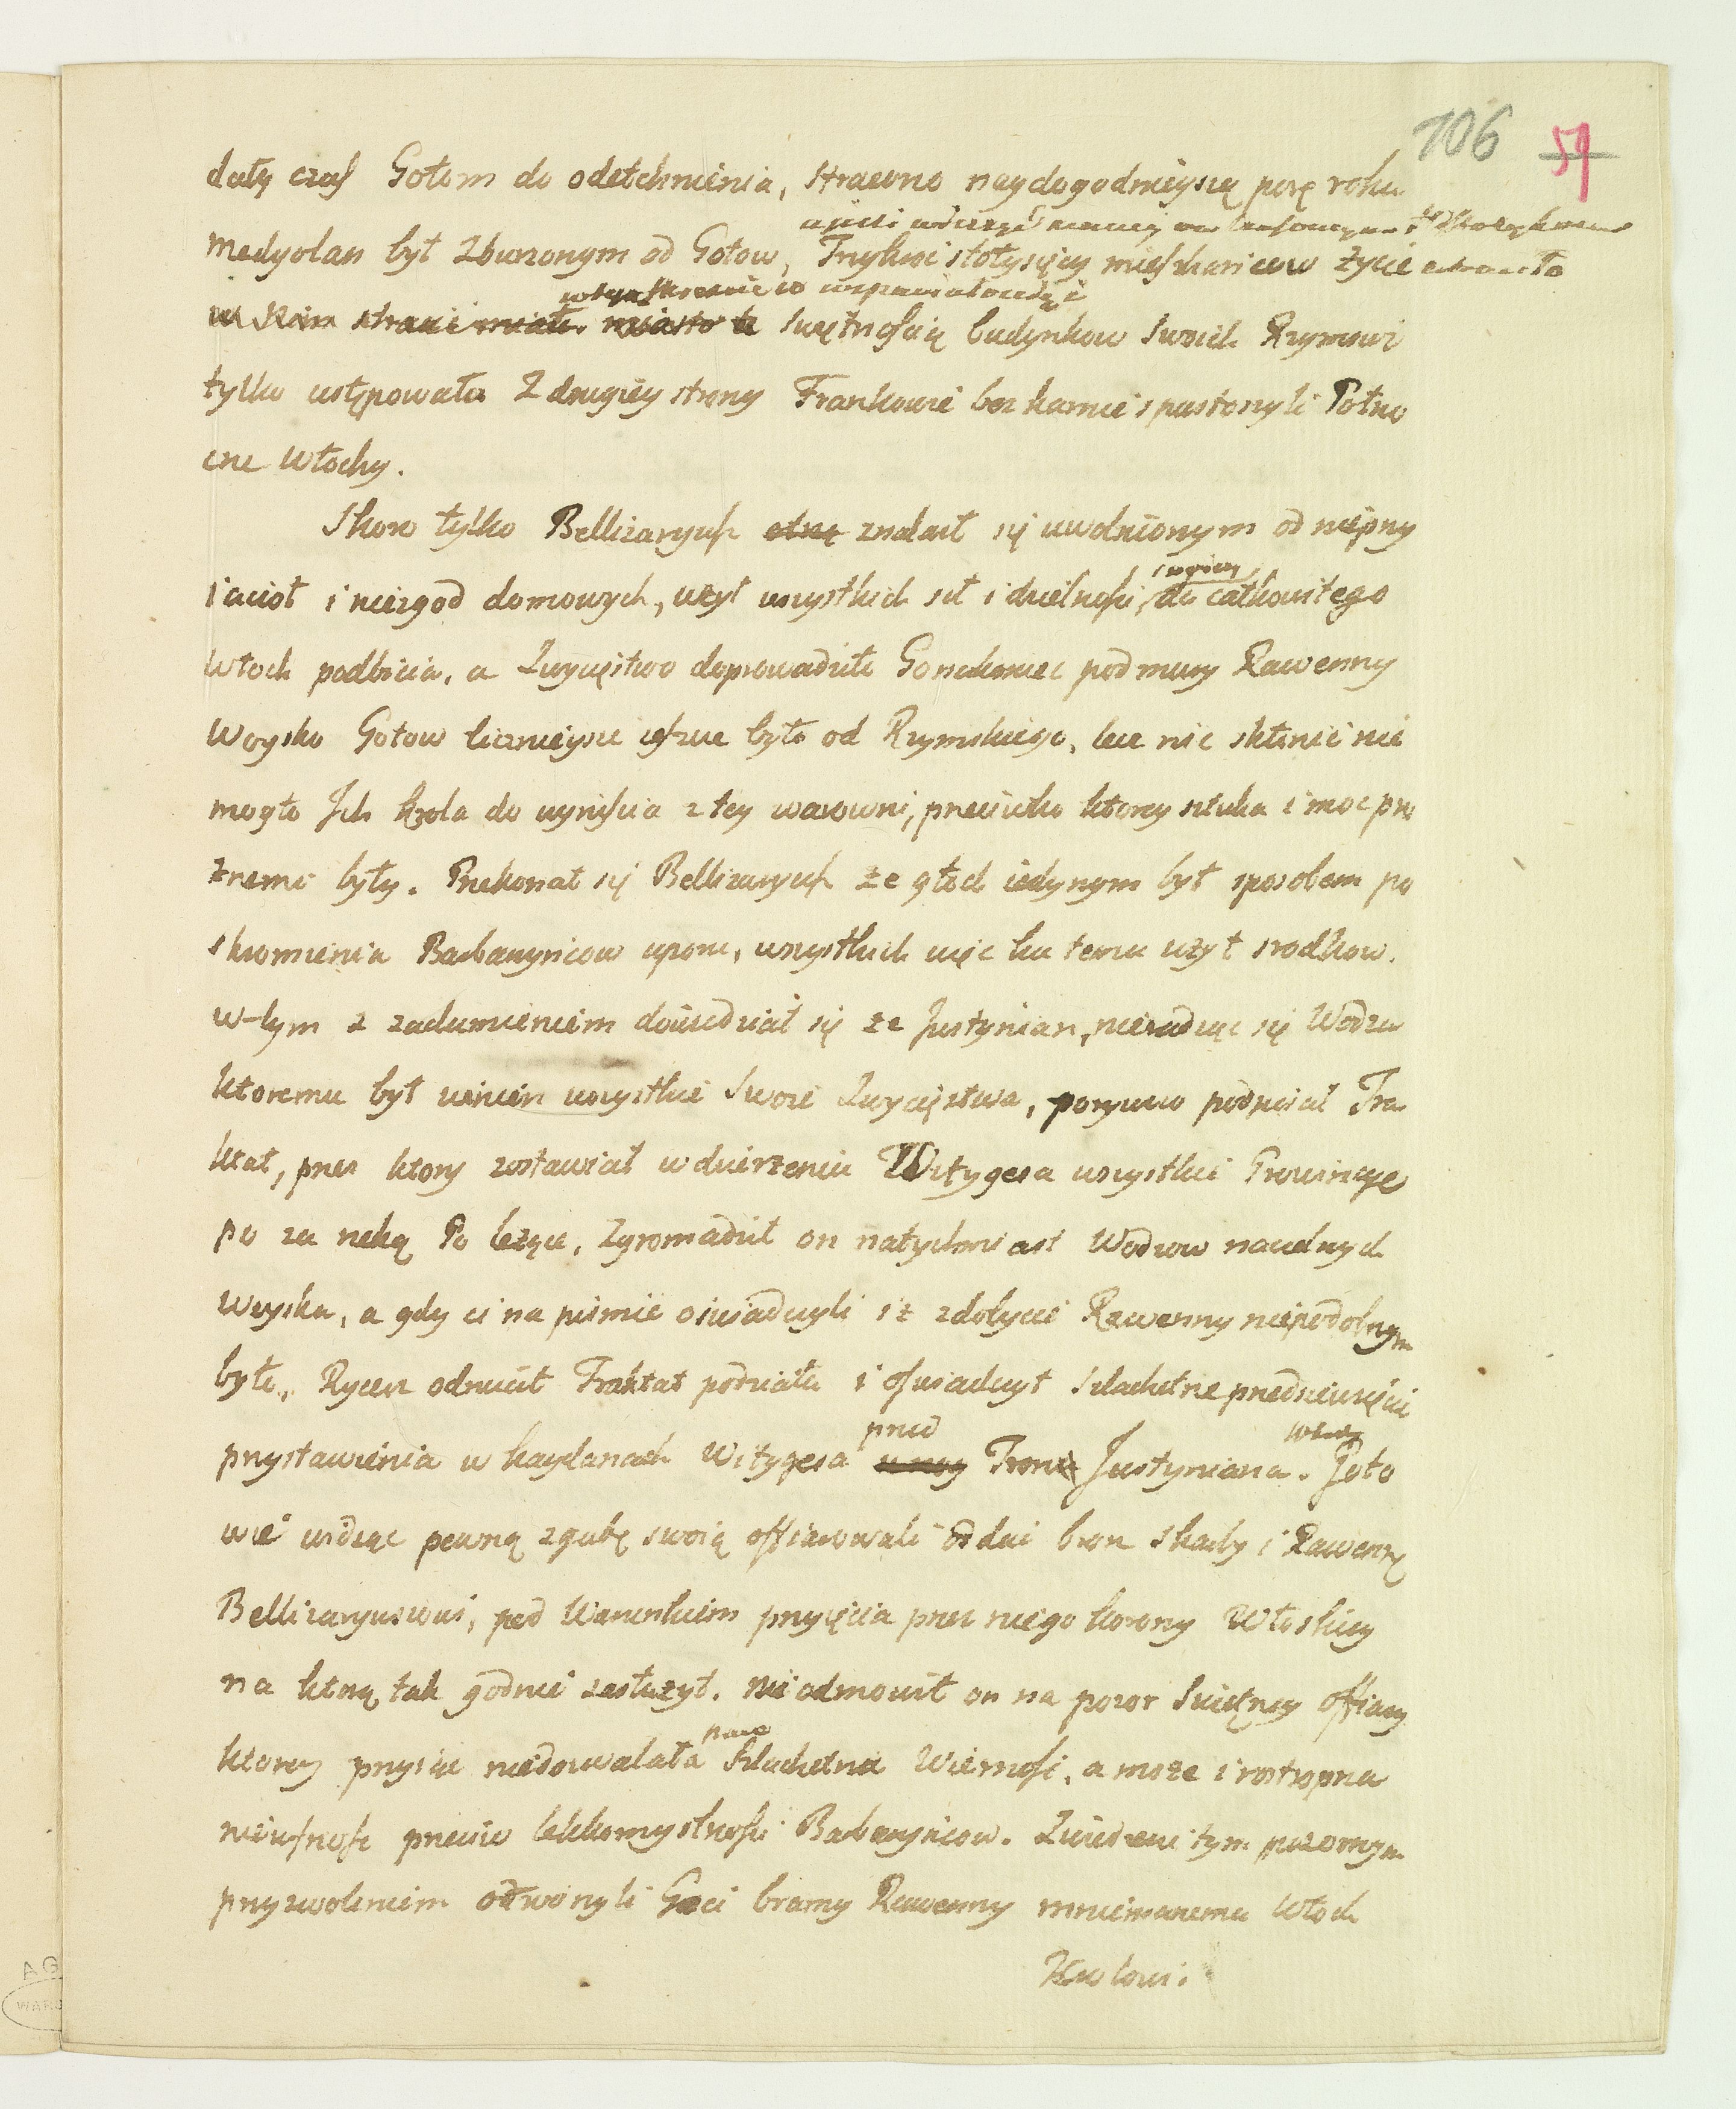 106 59
dały czas Gotom do odetchnienia, stracono naydogodnieyszą porę roku
Medyolan był zburzonym od Gotow, Trzykroć stotysięcy mieszkancow życie
świetnością budynkow swoich Rzymowi
tylko ustępowało Z drugiey strony Frankowie bezkarnie spustoszyli Połno
cne Włochy.
Skoro tylko Bellizaryusz znalazł się uwolnionym od nieprzy
iaciół i niezgod domowych, użył wszystkich sił i dzielności, do całkowitego
Włoch podbicia, a Zwycięstwo doprowadziło Go nakoniec pod mury Rawenny
Woysko Gotow licznieysze ieszcze było od Rzymskiego, lecz nic skłonić nie
mogło Ich Krola do wyniścia z tey warowni, przeciwko ktorey sztuka i moc pro
żnemi były. Przekonał się Bellizaryusz że głod iedynym był sposobem po
skromienia Barbarzyncow uporu, wszystkich więc ku temu użył srodkow.
w-tym z zadumieniem dowiedział się że Justynian, nieradząc się Wodza
ktoremu był winien wszystkie swoie Zwycięstwa, porywczo podpisał Tra
ktat, przez ktory zostawiał w dzierżeniu Witygesa wszystkie Prowincye
po za rzeką Po leżące, Zgromadził on natychmiast Wodzow naczelnych
Woyska, a gdy ci na pismie oświadczyli iż zdobycie Rawenny niepodobnym
było, Rycerz odrzucił Traktat podziału i oświadczył szlachetne przedsiewzięcie
przed wtedy
przystawienia w kaydanach Witygesa Tron Justyniana. Goto
wie widząc pewną zgubę swoią offiarowali oddać bron skarby i Rawennę
Bellizaryuszowi, pod Warunkiem przyięcia przez niego korony Włoskiey
na ktorą tak godnie zasłużył. Nie odmowił on na pozor świetney offiary
ktorey przyiąć niedozwalała szlachetna Wierność, a może i roztropna
nieufność przeciw lekkomyslności Barbarzyncow. Zwiedzeni tym pozornym
przyzwoleniem otworzyli Goci bramy Rawenny mniemanemu Włoch
Krolowi.